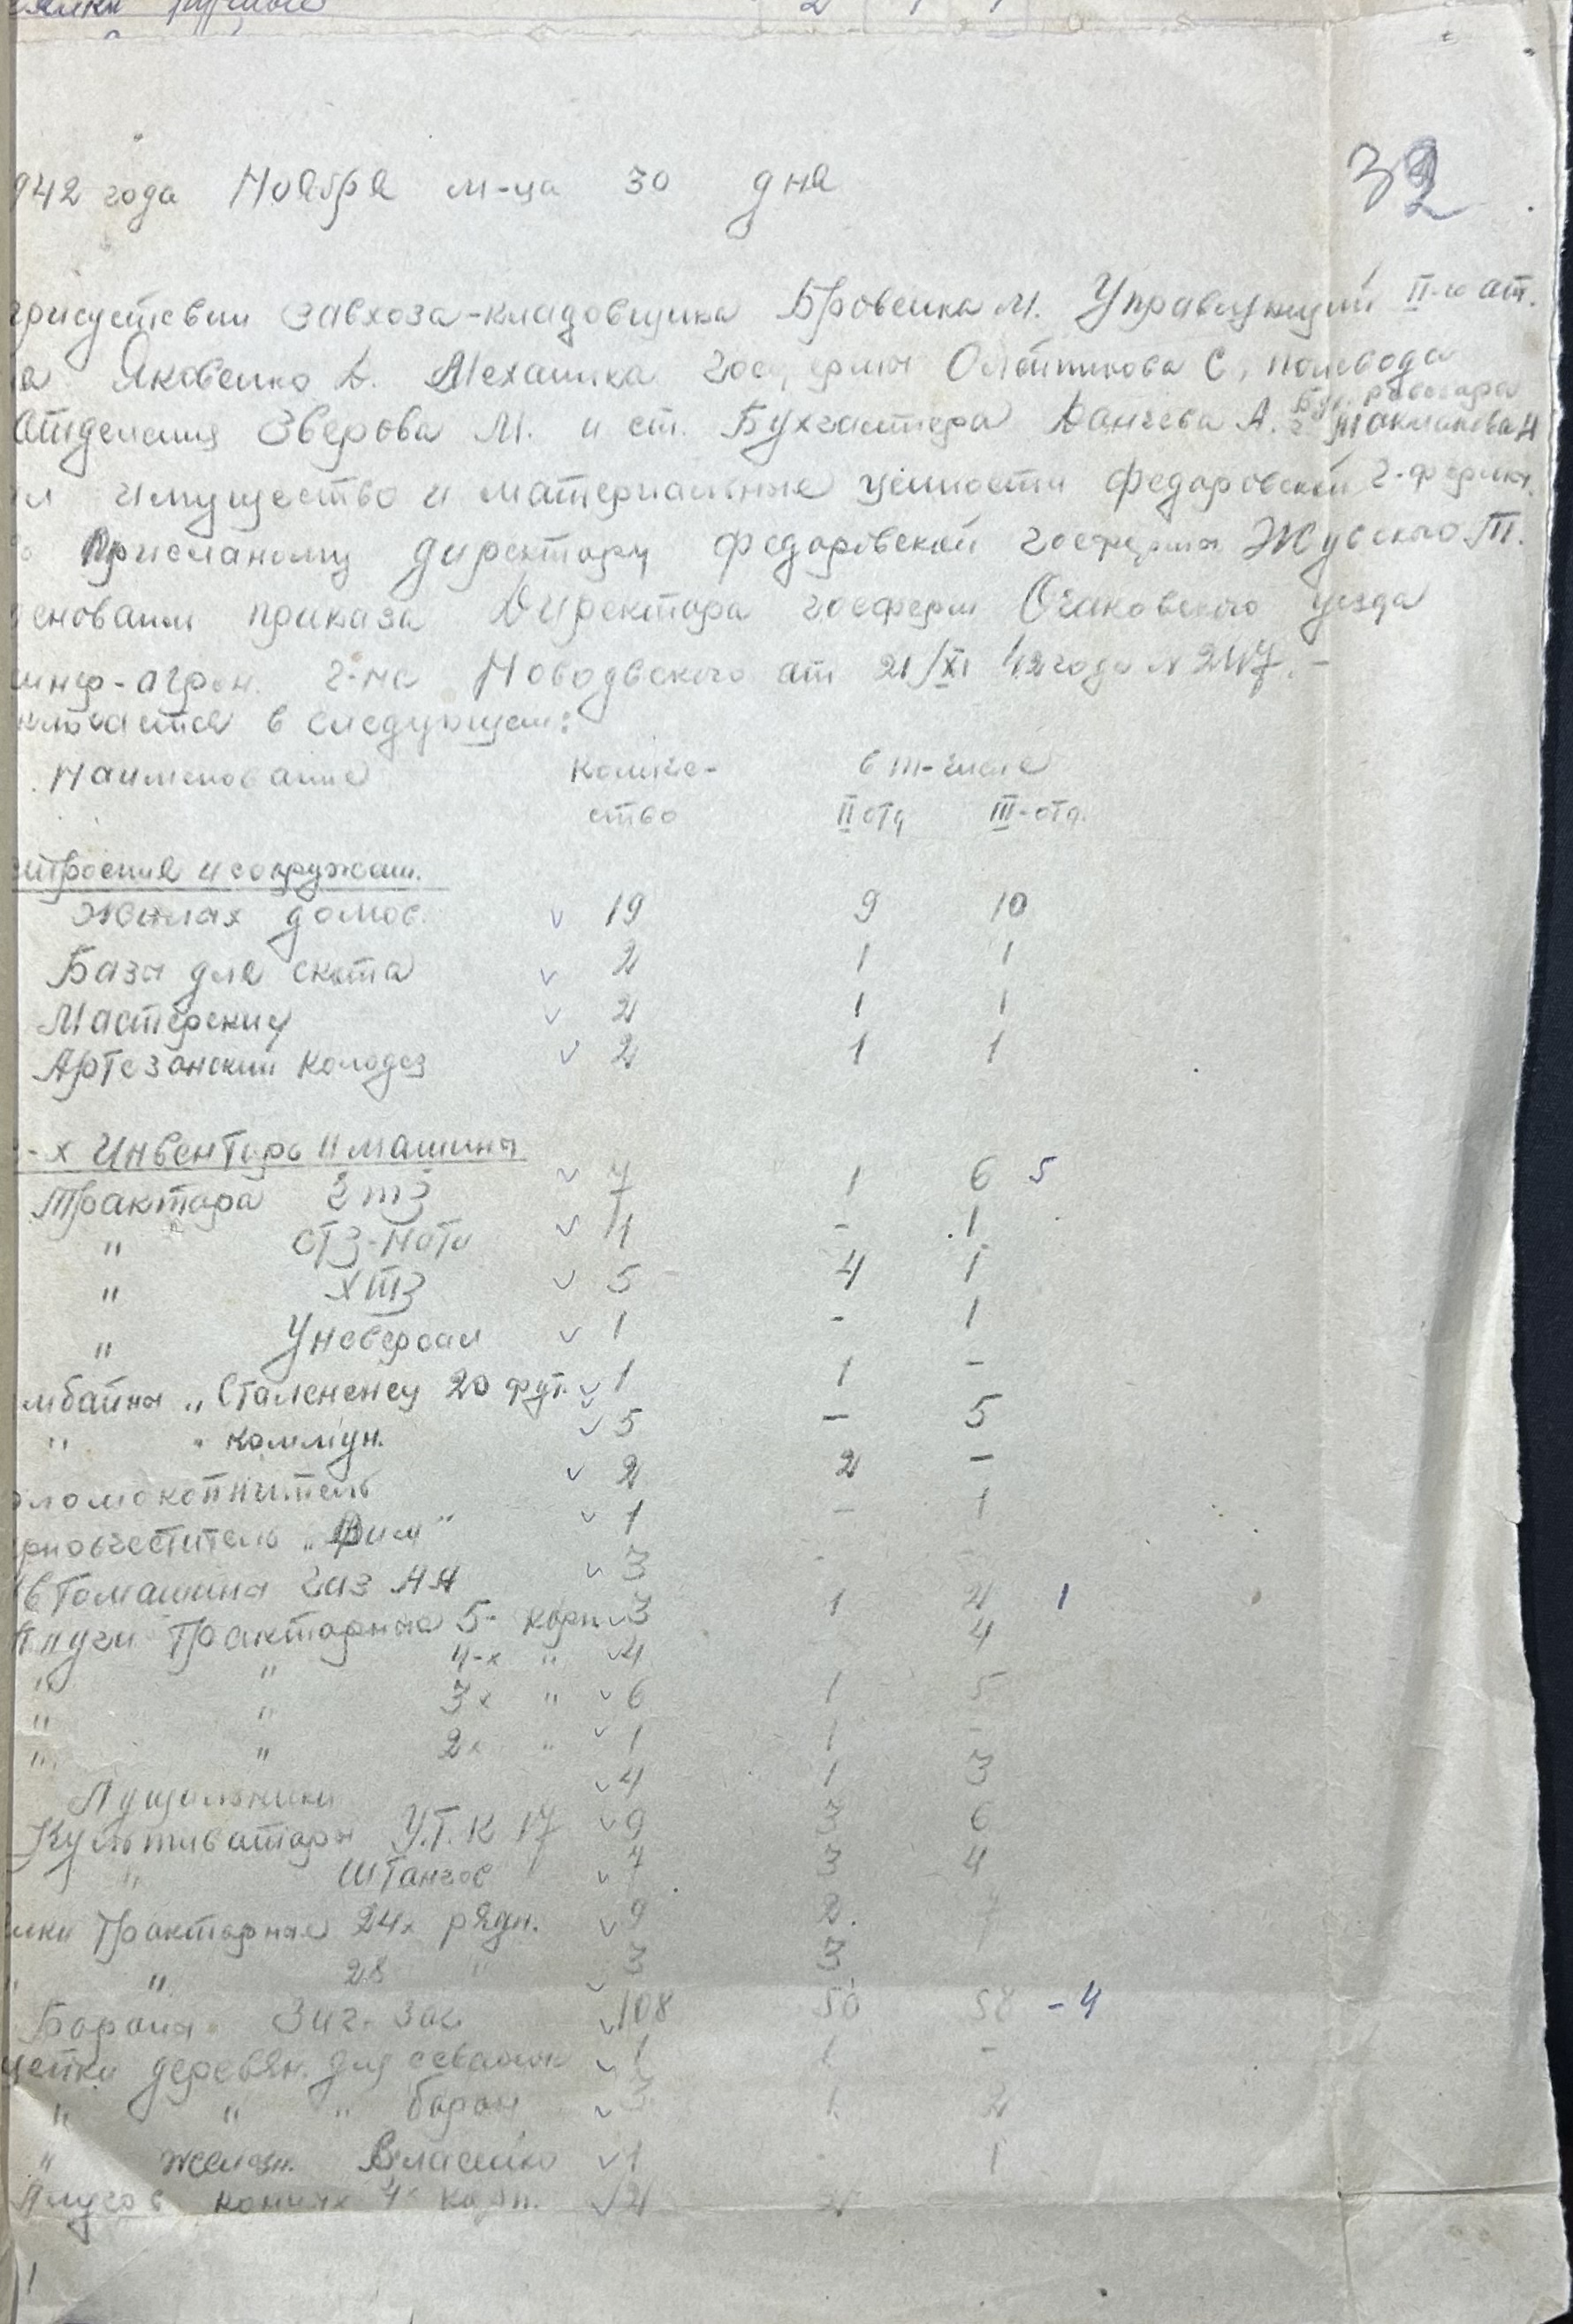 32
942 года Ноября м-ца 30 дня
присутствии завхоза-кладовщика Бровенка М. Управляющий II-го от.
Яковенко Д. Механика госфермы Олейникова С, полевода
отделения Зверова М. и ст. Бухгалтера Дангева А.
имущество и материальные ценности федоровской г-фермы.
Присланому директору федоровской госфермы Жувского Т.
сновании приказа Директора госферм Очаковского уезда
инф-агрон. г-на Новодвского от 21/XI 42 года N 2117. -
ключается в следующем:
Наименование Количе- в т-числе
ство II отд III-отд.
строения и сооружен.
Жилах домов. v 19 9 10
База для скота v 2 1 1
Мастерские v 2 1 1
Артезанский колодез v 2 1 1
-х Инвентарь и машины
Трактора ЧТЗ v 7 1 6 5
" СТЗ-Нати v 1 - 1
" ХТЗ v 5 4 1
" Уневерсал v 1 - 1
мбайны „Сталененец 20 фут. v 1 1 -
" " коммун. v 5 - 5
оломокопнитель v 2 2 -
рноочеститель „Вим" v 1 - 1
втомашина газ АА v 3 - -
Плуги Тракторные 5- корп. v 3 1 2 1
" " 4-х " v 4 4
" " 3х " v 6 1 5
" " 2х " v 1 1 -
Лущильники v 4 1 3
Культиваторы У.Т.К 17 v 9 3 6
" Штангов v 7 3 4
лки Тракторные 24х рядн. v 9 2. 7
" " 28 " v 3 3
Бороны Зиг-заг. v 108 50 58 - 4
цепки деревян. для сеялок v 1 1 -
" " " борон v 3 1 2
" железн. Власенко v 1 - 1
Плугов конных 4х корп. v 2 2